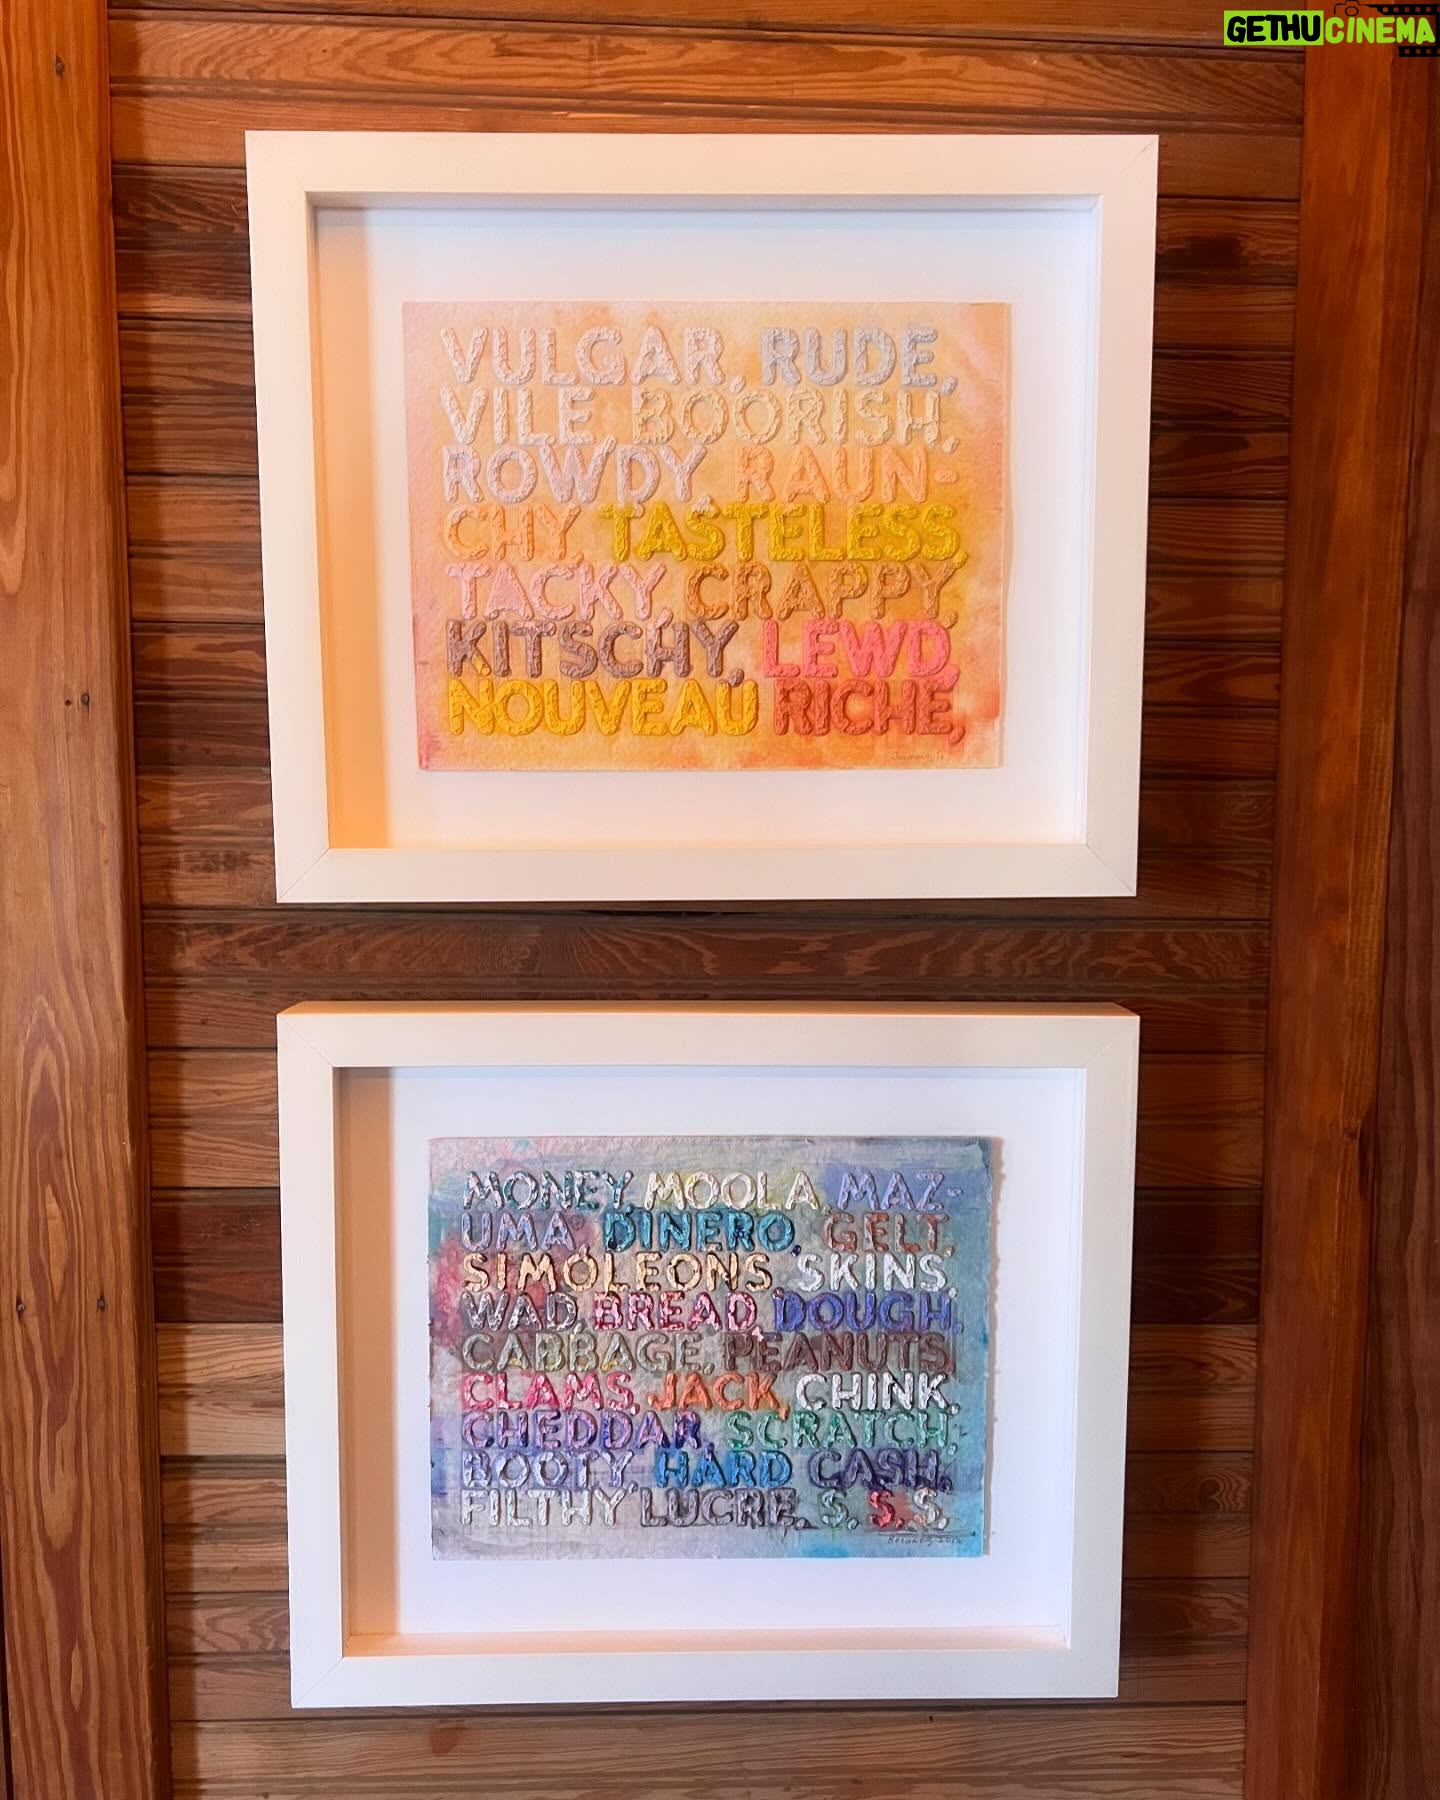 GETHUCINEMA
VULGAR, RUDE,
VILE, BOORISH,
ROWDY, RAUN-
CHY, TASTELESS,
TACKY, CRAPPY,
KITSCHY, LEWD,
NOUVEAU RICHE,
MONEY, MOOLA, MAZ-
UMA, DINERO, GELT,
SIMOLEONS, SKINS,
WAD, BREAD, DOUGH,
CABBAGE, PEANUTS,
CLAMS, JACK, CHINK,
CHEDDAR, SCRATCH,
BOOTY, HARD CASH,
FILTHY LUCRE, S. S. S.